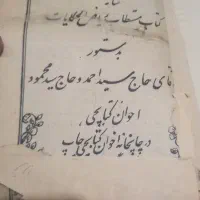 کتاب مستطاب
بدستور
آقای حاج سید احمد و حاج سید محمود
اخوان کتابچی
در چاپخانه اخوان کتابچی چاپ